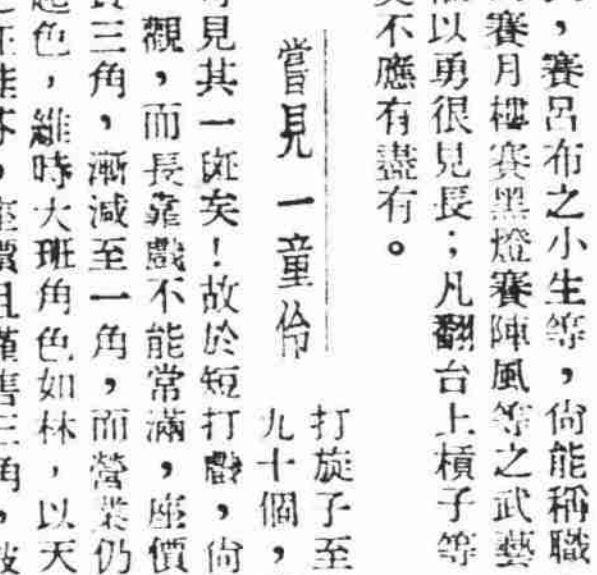 ，賽呂布之小生等，尙能稱職
賽月樓賽黑燈賽陣風等之武藝
以勇很見長；凡翻台上槓子等
不應有盡有。
嘗見一童伶
打旋子至
九十個，
見其一斑矣！故於短打戲，尙
觀，而長靠戲不能常滿，座價
三角，漸減至一角，而營業仍
色，維時大班角色如林，以天
座價且僅售三角，